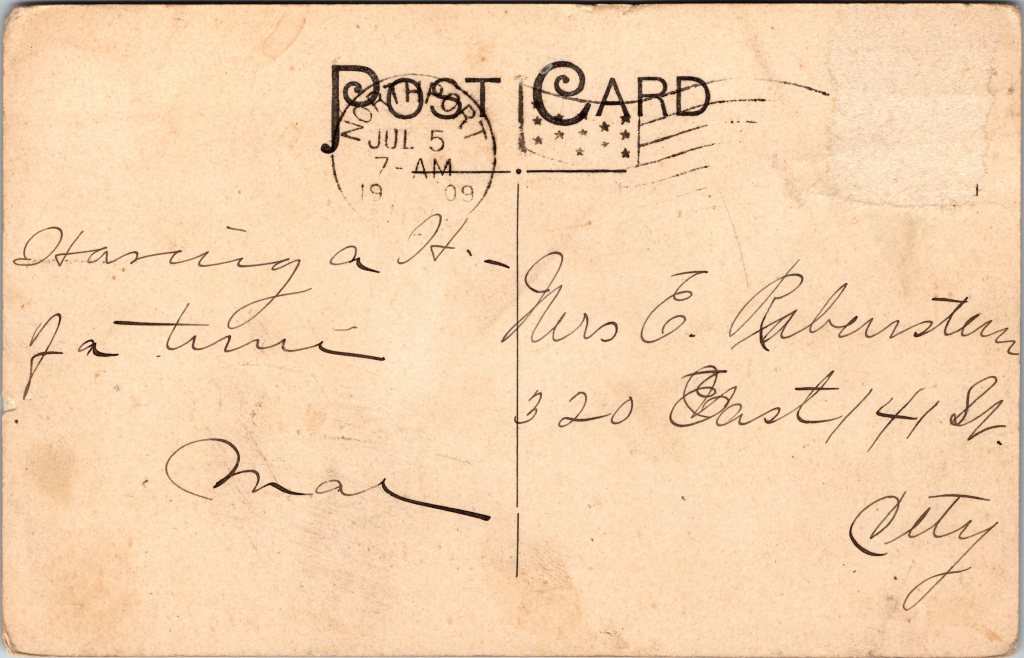 POST CARD
NORTHPORT
JUL 5
7-AM
19 09
Having a H. -
of a time
Mae
Mrs E. Rabenstein
320 East 141 St.
City